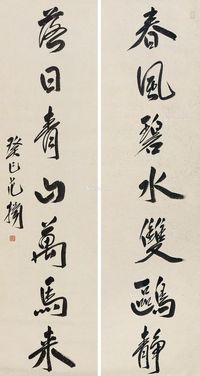 春風碧水雙鷗靜
落日青山萬馬来
癸巳范揚